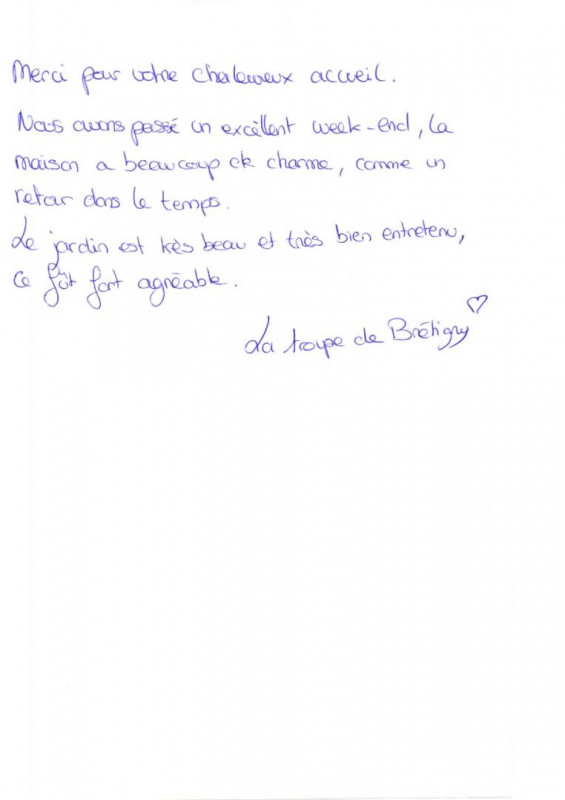 Merci pour votre chaleureux accueil.
Nous avons passé un excellent week-end, la
maison a beaucoup de charme, comme un
retour dans le temps.
Le jardin est très beau et très bien entretenu,
ce fût fort agréable.
La troupe de Brétigny ♡